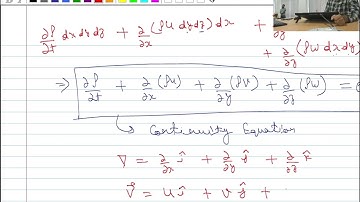 ∂ρ/∂t dx dy dz + ∂/∂x (ρu dy dz) dx +
∂z
+ ∂/∂z (ρw dx dy)
⇒ ∂ρ/∂t + ∂/∂x (ρu) + ∂/∂y (ρv) + ∂/∂z (ρw) =
↳ Continuity Equation
∇ = ∂/∂x î + ∂/∂y ĵ + ∂/∂z k̂
V⃗ = u î + v ĵ +